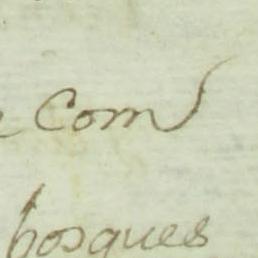 com
bosques